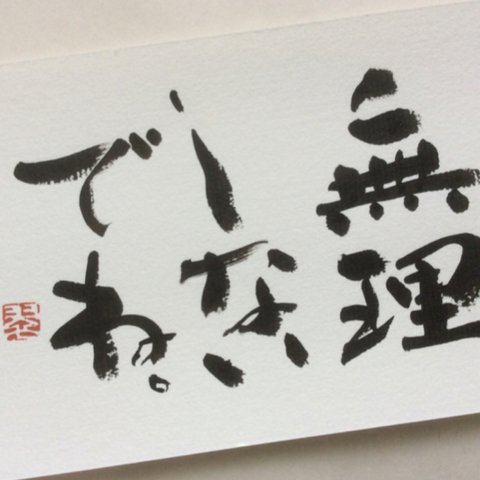 無理
しない
でね。